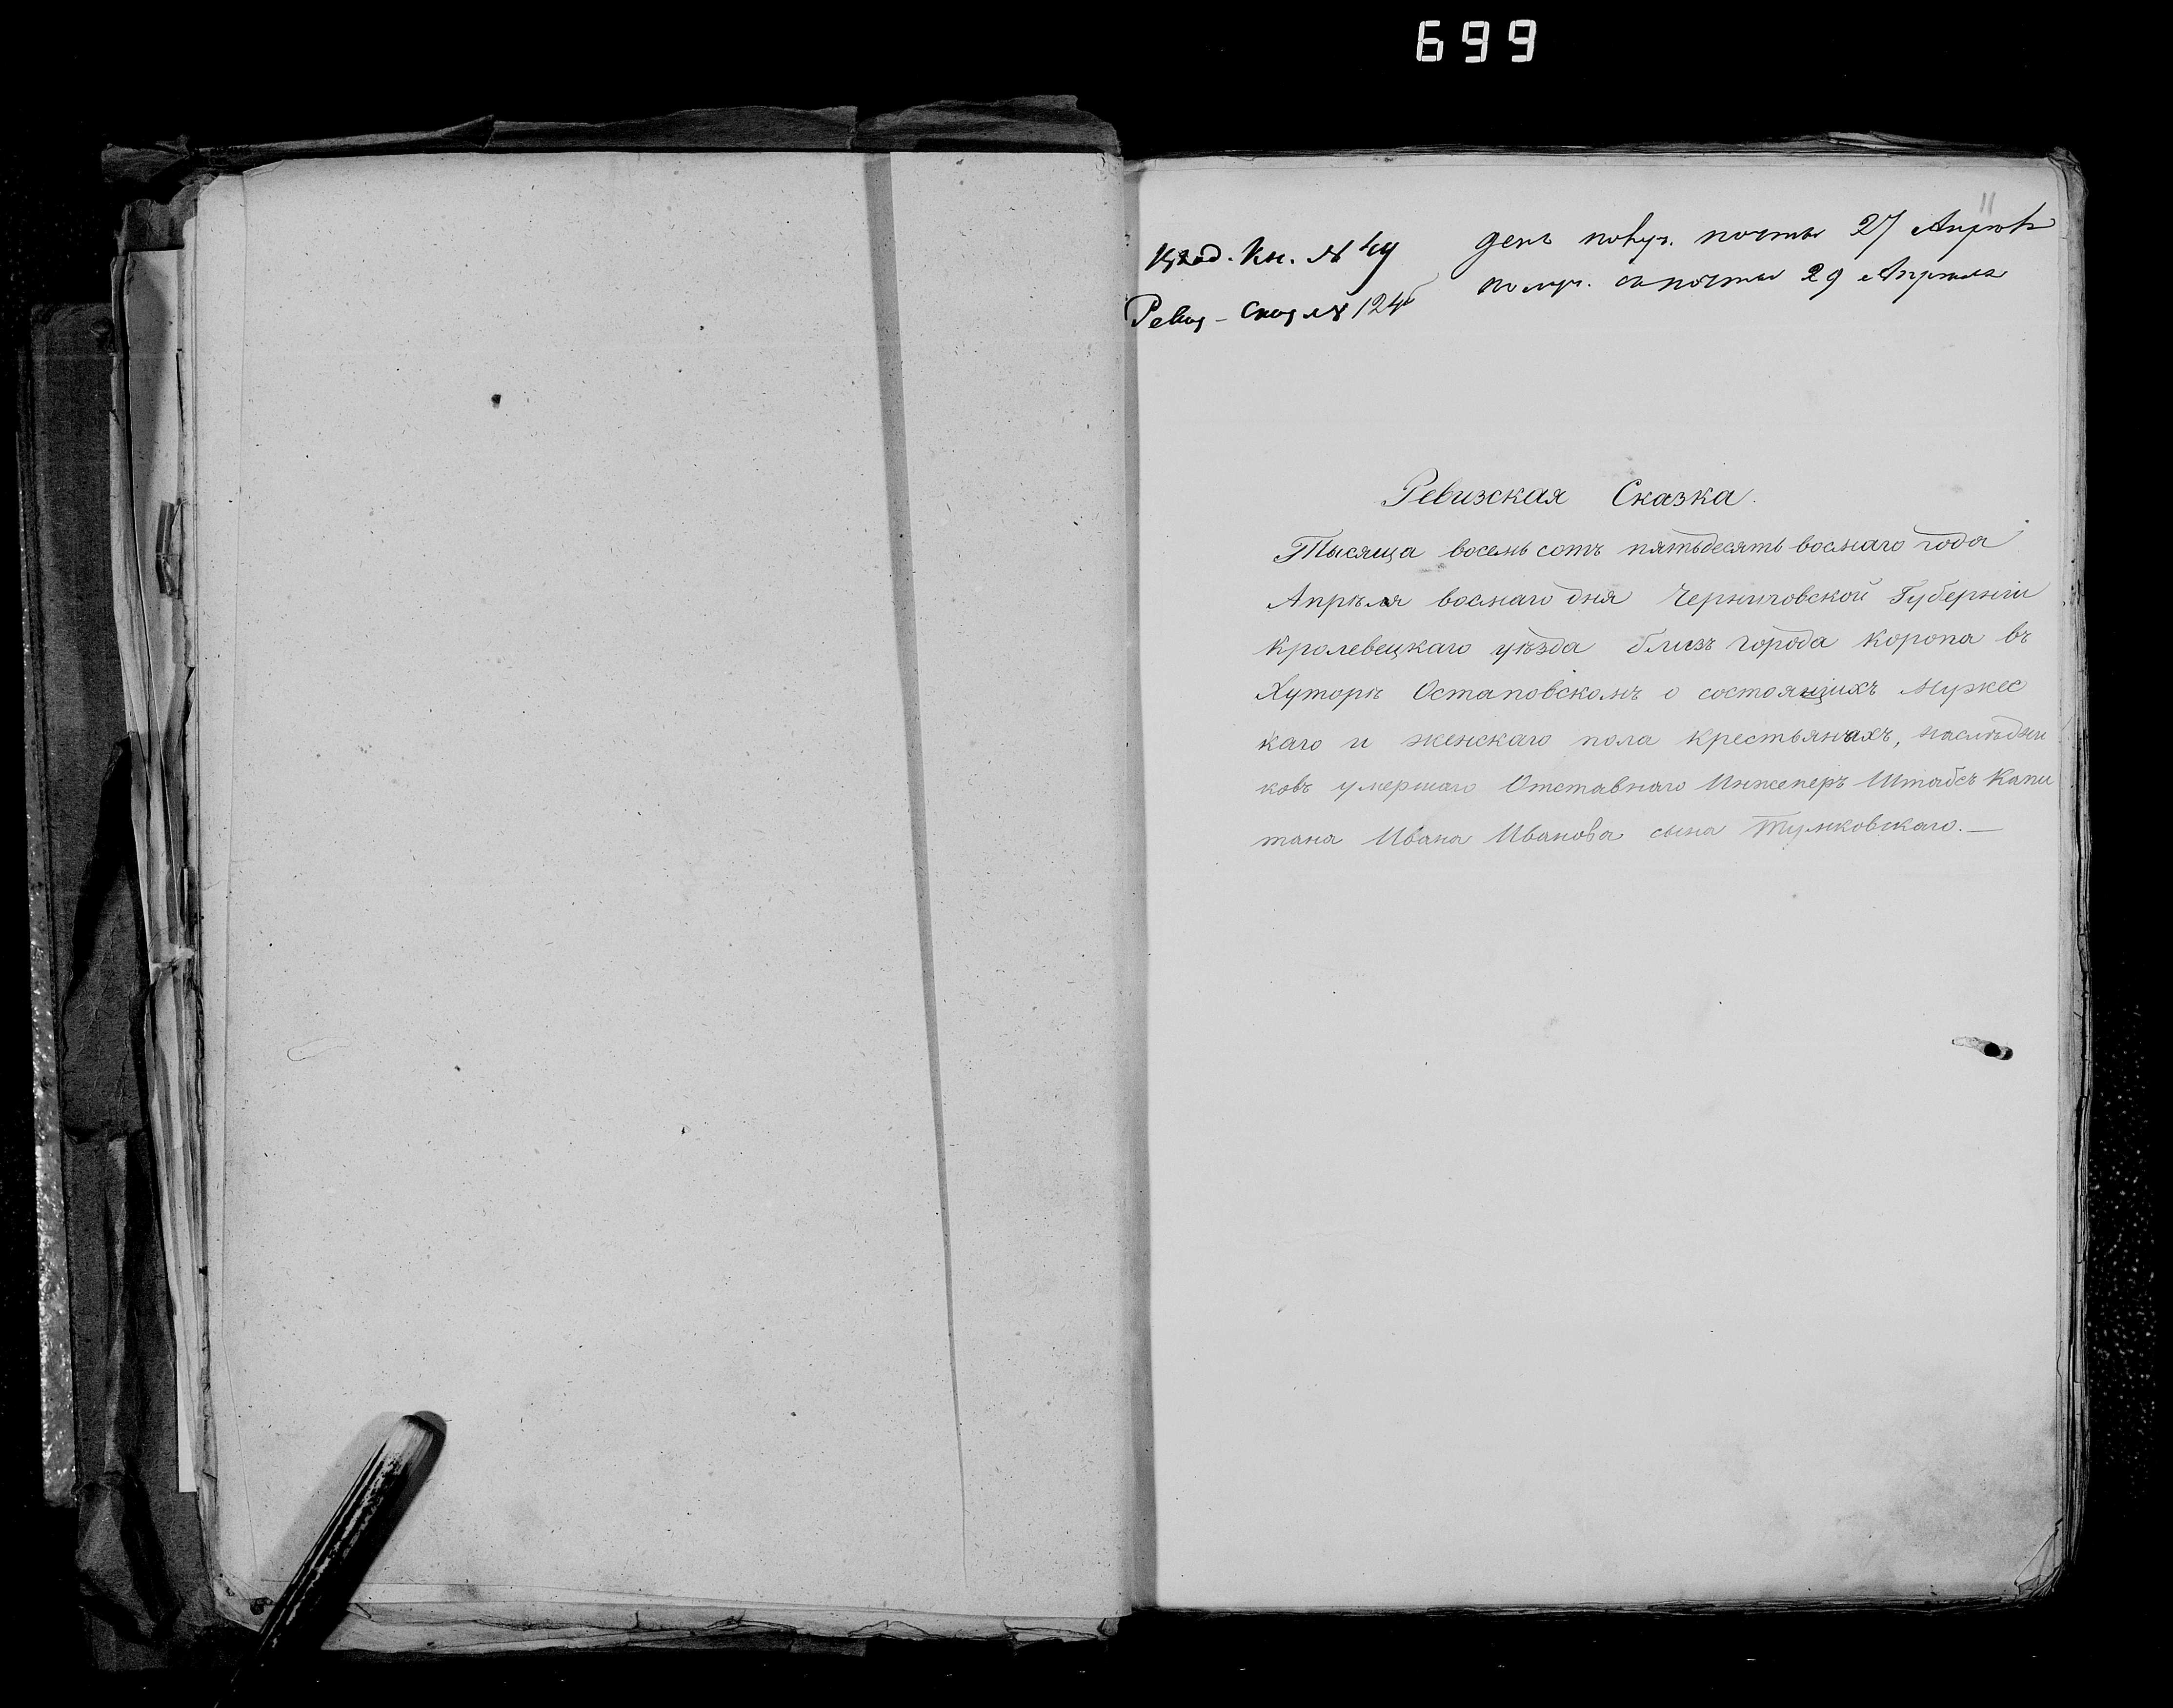 699
11
Кн. № 49
день получ. почты 27 Апрѣля
Ревиз. Сказ. № 124
получ. съ почты 29 Апрѣля
Ревизская Сказка.
Тысяща восемь сотъ пятьдесять восмаго года
Апрѣля восмаго дня Черниговской Губерніи
Кролевецкаго уѣзда близъ города Коропа въ
Хуторѣ Остаповскомъ о состоящихъ мужес
каго и женскаго пола крестьянахъ, наслѣдни
ковъ умершаго Отставнаго Инженеръ Штабсъ Капи
тана Ивана Иванова сына Тумковскаго.—